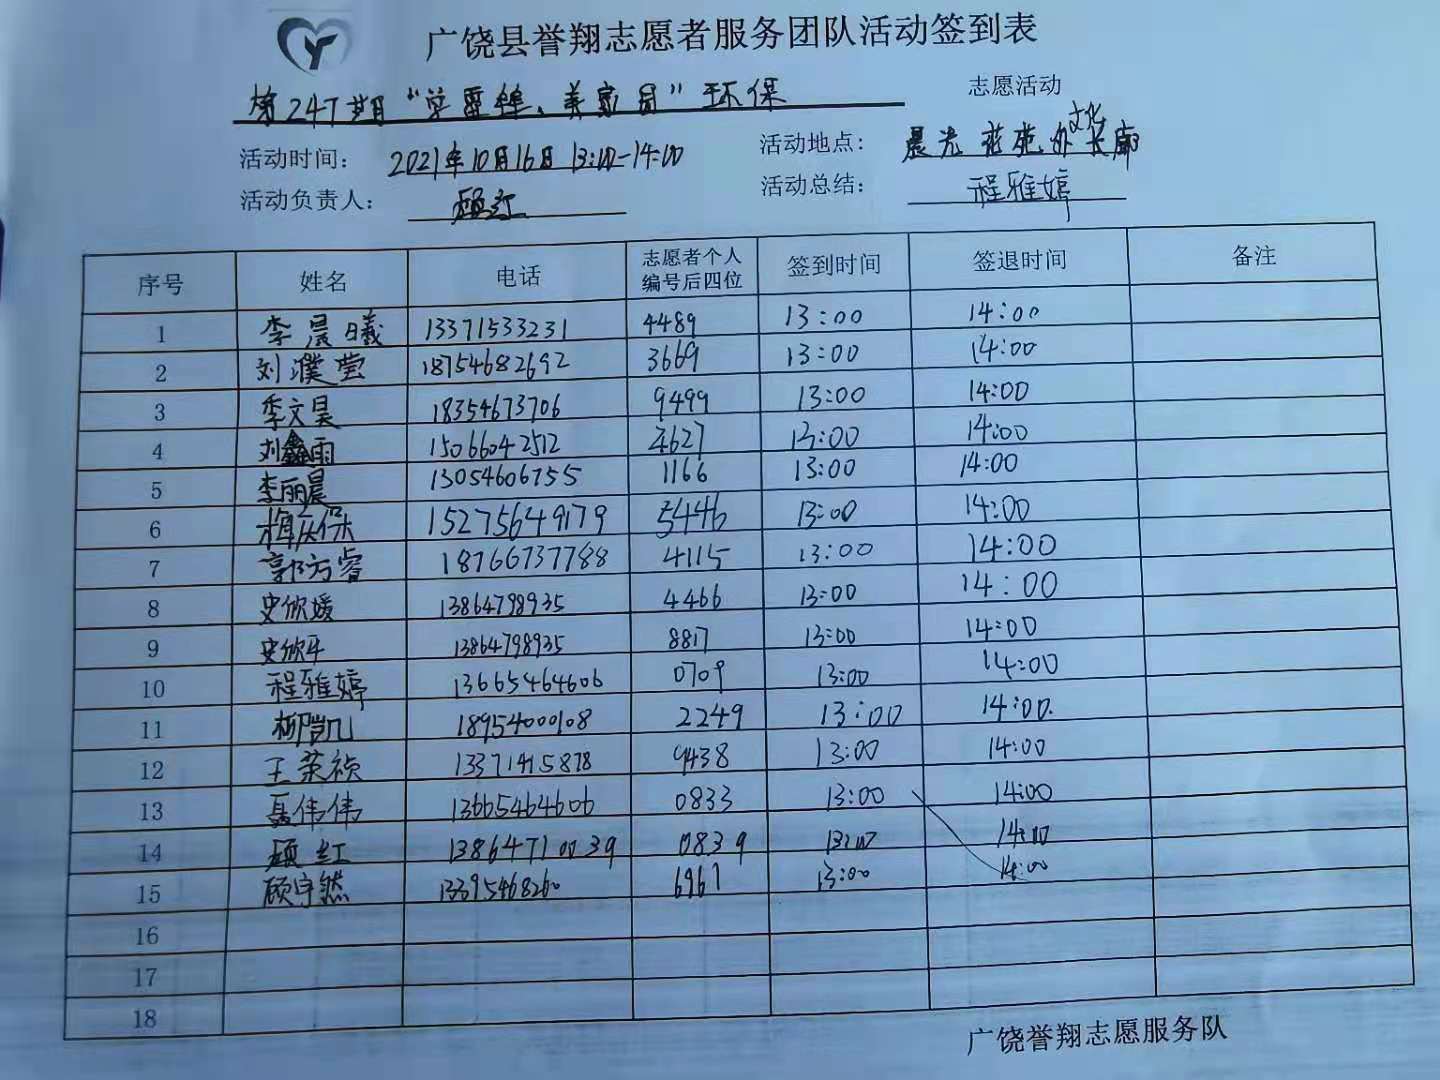 广饶县誉翔志愿者服务团队活动签到表
第247期“学雷锋、美家园”环保 志愿活动
活动时间: 2021年10月16日 13:00-14:00 活动地点: 晨光花苑外文化长廊
活动负责人: 顾红 活动总结: 程雅婷
序号 姓名 电话 志愿者个人编号后四位 签到时间 签退时间 备注
1 李晨曦 13371533231 4489 13:00 14:00
2 刘濮莹 18754682692 3669 13:00 14:00
3 季文昊 18354673706 9499 13:00 14:00
4 刘鑫雨 15066042512 4627 13:00 14:00
5 李丽晨 13054606755 1166 13:00 14:00
6 梅庆保 15275649179 5446 13:00 14:00
7 郭方睿 18766737788 4115 13:00 14:00
8 史欣媛 13864798935 4466 13:00 14:00
9 史欣平 13864798935 8817 13:00 14:00
10 程雅婷 13665464606 0709 13:00 14:00
11 柳凯 18954000108 2249 13:00 14:00
12 王荣祯 13371415878 9438 13:00 14:00
13 聂伟伟 13665464606 0833 13:00 14:00
14 顾红 13864710039 0839 13:00 14:00
15 顾宇然 13395468260 6967 13:00 14:00
16
17
18
广饶誉翔志愿服务队